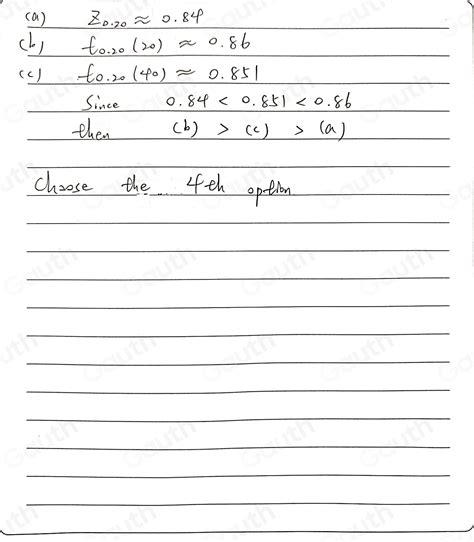 (a) Z₀.₂₀ ≈ 0.84
(b) t₀.₂₀ (20) ≈ 0.86
(c) t₀.₂₀ (40) ≈ 0.851
Since 0.84 < 0.851 < 0.86
then (b) > (c) > (a)
Choose the 4th option